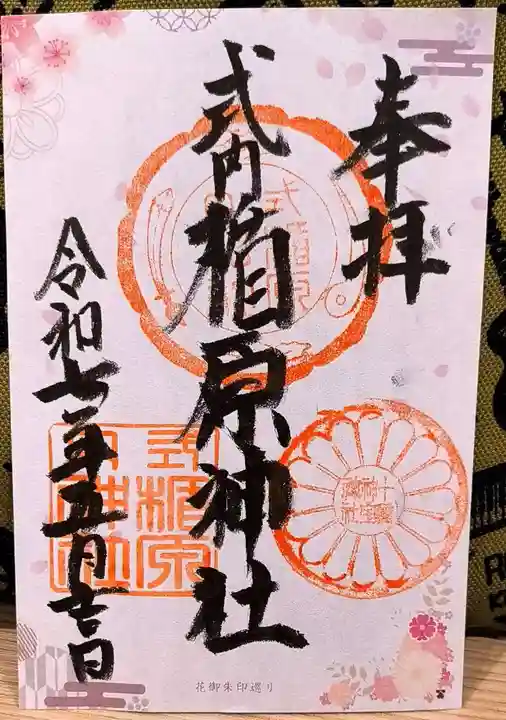 奉拝
式内楯原神社
令和七年五月吉日
式内楯原神社
花御朱印巡り